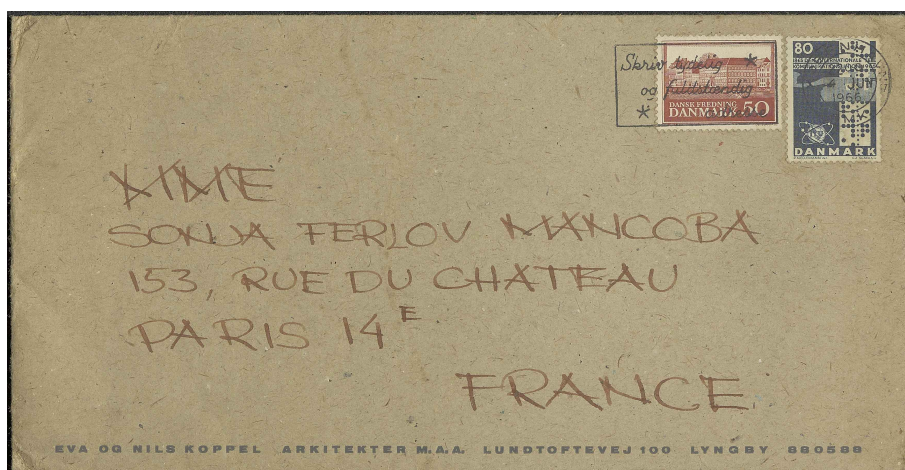 Skriv tydelig
og fuldstændig
DANSE FREDNING
DANMARK 50
80
JUN
1966
DANMARK
MME
SONJA FERLOV MANCOBA
153, RUE DU CHATEAU
PARIS 14E
FRANCE
EVA OG NILS KOPPEL ARKITEKTER M.A.A. LUNDTOFTEVEJ 100 LYNGBY 880588